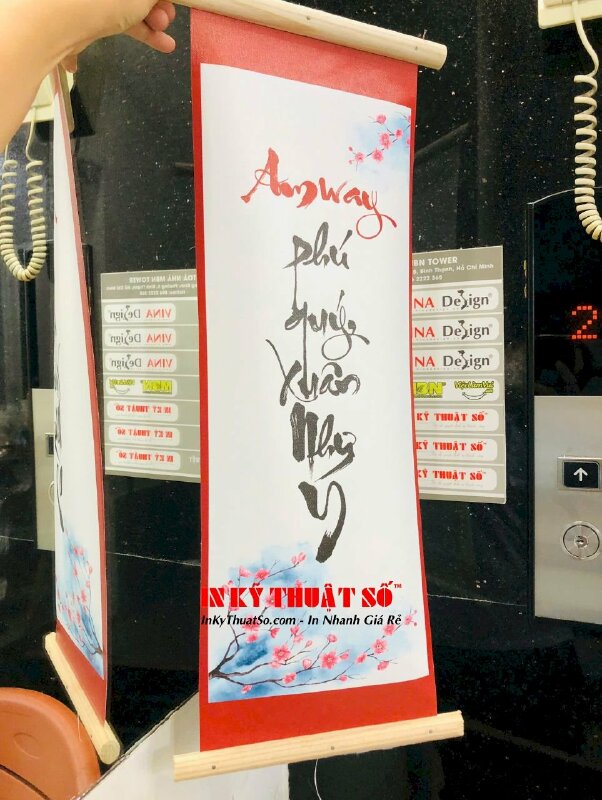 Amway
phú
quý
Xuân
Như
Ý
IN KỸ THUẬT SỐ™
InKyThuatSo.com - In Nhanh Giá Rẻ
MBN TOWER
Bình Thạnh, Hồ Chí Minh
2222 568
NA Design®
NA Design®
NA Design®
KỸ THUẬT SỐ™
KỸ THUẬT SỐ™
KỸ THUẬT SỐ™
TOÀ NHÀ MBN TOWER
VINA Design®
VINA Design®
VINA Design®
MBN
IN KỸ THUẬT SỐ™
IN KỸ THUẬT SỐ™
IN KỸ THUẬT SỐ™
2